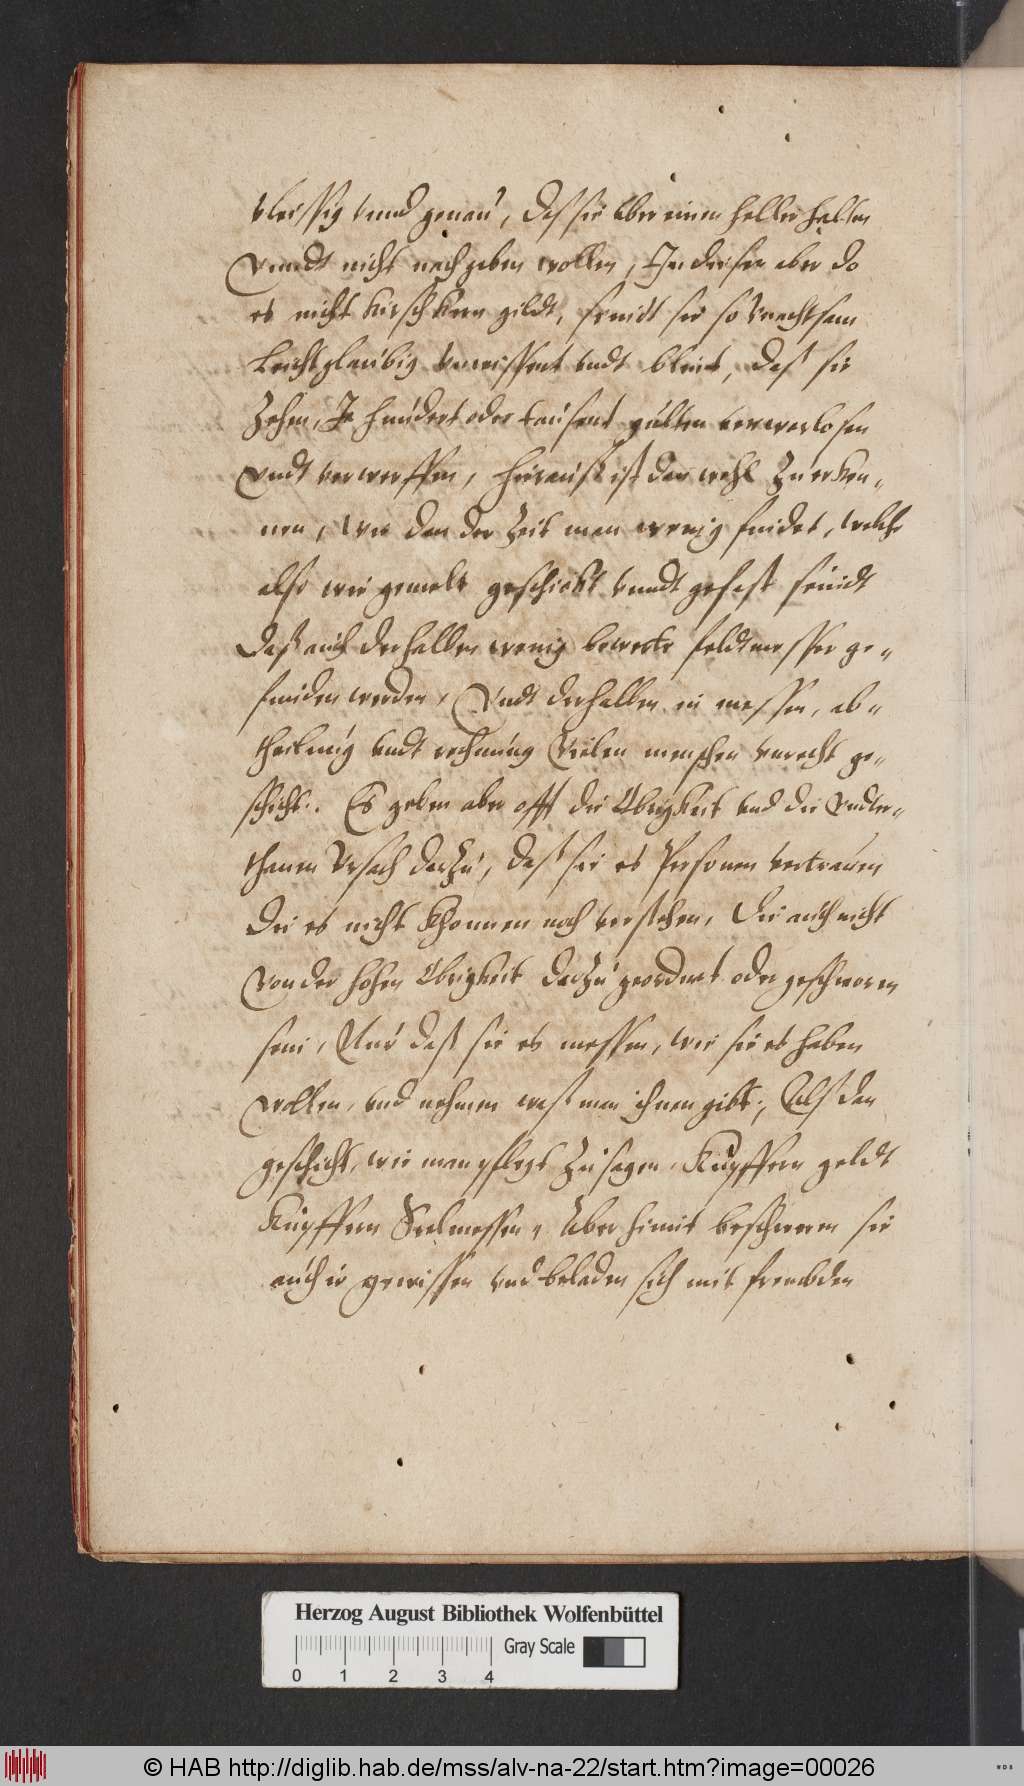 vleissig vnnd genau, das sie vber einen heller halten
Vnndt nicht nachgeben wollen, In diesen aber do
es nicht kirschkern gildt, seindt sie so vnachtsam
leichtglaubig vnwissent vndt blint, das sie
Zehen, Ja hundert oder tausent gulten verwarlosen
Vndt verwerffen, hieraus ist dan wohl Zu erken-
nen, wie dan der Zeit man wenig findet, welche
also wie gemelt geschickt vnndt gefast seindt
Daß auch derhalben wenig bewerte feldtmesser ge-
funden werden, Vndt derhalben in messen, ab-
theilung vndt rechnung Vielen menschen vnrecht ge-
schicht. Es geben aber offt die Obrigkeit vnd die Vnder-
thanen Vrsach darZu, das sie es Personen vertrauen
Die es nicht khonnen noch verstehen, Die auch nicht
Von der hohen Obrigkeit darZu geordnet oder geschworen
sein, Nur daß sie es messen, wie sie es haben
wollen, vnd nehmen was man ihnen gibt, Als dan
geschicht, wie man pflegt Zu sagen, Kupffern geldt
Kupffern Seelmessen, Aber himit beschweren sie
auch ir gewissen vnd beladen sich mit frembden
Herzog August Bibliothek Wolfenbüttel
Gray Scale
0 1 2 3 4
© HAB http://diglib.hab.de/mss/alv-na-22/start.htm?image=00026